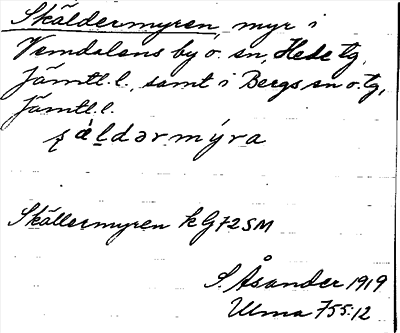 Skäldermyren, myr i
Vemdalens by o. sn, Hede tg,
Jämtl. l., samt i Bergs sn o. tg,
Jämtl. l.
ʂäldərmýra
Skällermyren k G72SM
S. Åsander 1919
Ulma 755:12